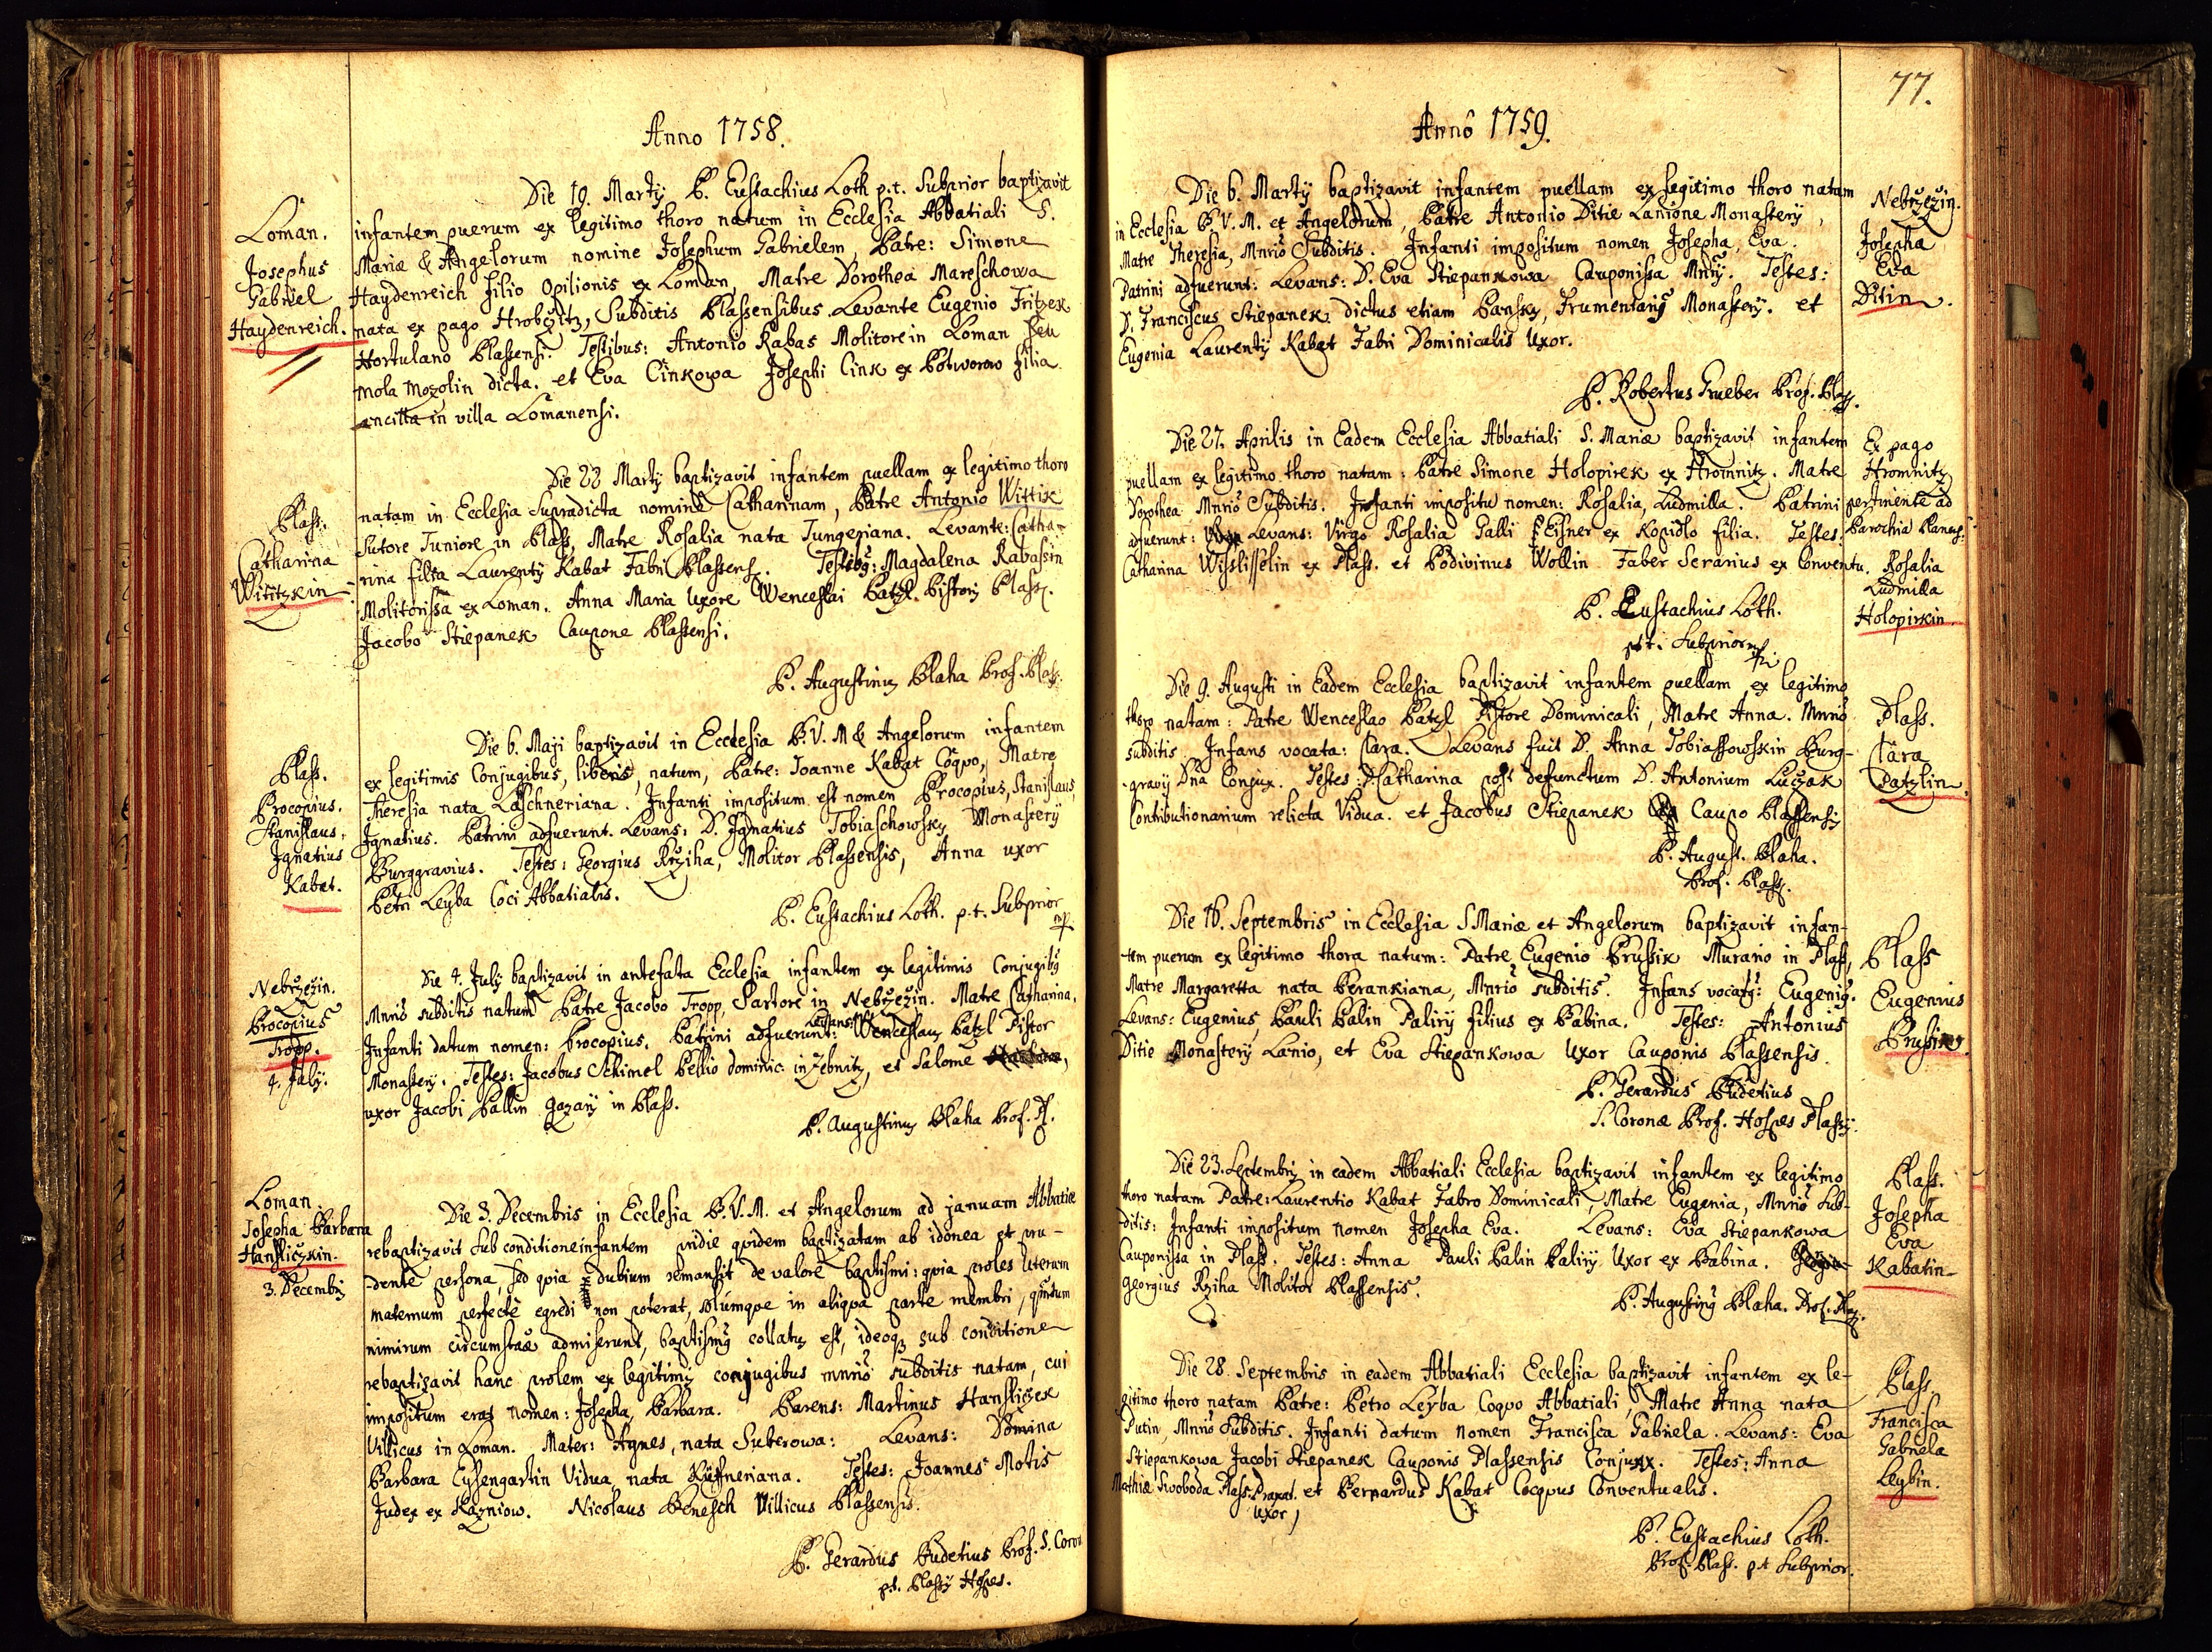 Anno 1758.
Loman.
Josephus
Gabriel
Haydenreich.
Die 19. Martÿ P. Eustachius Loth p.t. Subprior baptizavit
infantem puerum ex legitimo thoro natum in Ecclesia Abbatiali S.
Mariæ & Angelorum nomine Josephum Gabrielem, Patre: Simone
Haydenreich filio Opilionis ex Loman, Matre Dorothea Mareschowa
nata ex pago Hrobczitz, Subditis Plassensibus. Levante Eugenio Fritzek
Hortulano Plassensi. Testibus: Antonio Rabas Molitore in Loman seu
Mola Mozolin dicta. et Eva Cinkowa Josephi Cink ex Potworow filia
ancilla in villa Lomanensi.
Plass.
Catharina
Wititzkin
Die 22 Martÿ baptizavit infantem puellam ex legitimo thoro
natam in Ecclesia Supradicta nomine Catharinam, Patre Antonio Wittik
Sutore Juniore in Plass, Matre Rosalia nata Jungeriana. Levante: Catha-
rina filia Laurentÿ Kabat Fabri Plassens. Testibg: Magdalena Rabassin
Molitorissa ex Loman. Anna Maria Uxore Wenceslai Patzl Pistoris Plass.
Jacobo Stiepanek Caupone Plassensi.
P. Augustinus Blaha Prof. Plass.
Plass.
Procopius.
Stanislaus,
Ignatius
Kabat.
Die 6. Maji baptizavit in Ecclesia B.V.M & Angelorum infantem
ex legitimis Conjugibus, liberis, natum, Patre: Joanne Kabat Coqvo, Matre
Theresia nata Laschneriana. Infanti impositum est nomen Procopius, Stanislaus,
Ignatius. Patrini adfuerunt. Levans: D. Ignatius Tobiaschowsky Monasterÿ
Burggravius. Testes: Georgius Rziha, Molitor Plassensis, Anna uxor
Petri Leyba Coci Abbatialis.
P. Eustachius Loth. p.t. Subprior
mp.
Nebrzezin.
Procopius
Tropp.
4. July.
Die 4. July baptizavit in antefata Ecclesia infantem ex legitimis Conjugibg
Mnrio subditis natum Patre Jacobo Tropp, Sartore in Nebrzezin. Matre Catharina,
Infanti datum nomen: Procopius. Patrini adfuerunt: Levans: Wenceslaus Patzl Pistor
Monasterÿ. Testes: Jacobus Schimel Pellio dominic: in Zebnitz, et Salome
uxor Jacobi Pallin Gazarÿ in Plass.
P. Augustinus Blaha Prof. Pl.
Loman.
Josepha Barbara
Hansliczkin.
3. Decembris
Die 3. Decembris in Ecclesia B.V.M. et Angelorum ad januam Abbatiæ
rebaptizavit sub conditione infantem pridie qvidem baptizatam ab idonea et pru-
dente persona, sed qvia dubium remansit de valore baptismi: qvia proles uterum
maternum perfectè egredi non poterat, solùmqve in aliqva parte membri, qvantum
nimirum circumstantiæ admiserunt, baptismus collatus est, ideoq; sub conditione
rebaptizavit hanc prolem ex legitimis conjugibus mnrio subditis natam, cui
impositum erat nomen: Josepha, Barbara. Parens: Martinus Hansliczek
Villicus in Loman. Mater: Agnes, nata Suberowa: Levans: Domina
Barbara Eysengartin Vidua nata Küfneriana. Testes: Joannes Motis
Judex ex Kazniow. Nicolaus Benesch Villicus Plassensis.
P. Gerardus Budetius Prof. S. Coron
p.t. Plassÿ Hospes.
77.
Annô 1759.
Die 6. Martÿ baptizavit infantem puellam ex legitimo thoro natam
in Ecclesia B.V.M. et Angelorum, Patre Antonio Ditie Lanione Monasterÿ,
Matre Theresia, Mnrio Subditis. Infanti impositum nomen Josepha, Eva.
Patrini adfuerunt: Levans: D. Eva Stiepankowa Cauponissa Mnrÿ. Testes:
D. Franciscus Stiepanek dictus etiam Pansky, Frumentarius Monasterÿ. et
Eugenia Laurentÿ Kabat Fabri Dominicalis Uxor.
P. Robertus Grueber Prof. Plass.
Nebrzezin.
Josepha
Eva
Ditin.
Die 27. Aprilis in Eadem Ecclesia Abbatiali S. Mariæ baptizavit infantem
puellam ex legitimo thoro natam: Patre Simone Holopirek ex Hromnitz. Matre
Dorothea Mnrio Subditis. Infanti impositu nomen: Rosalia, Ludmilla. Patrini
adfuerunt: Levans: Virgo Rosalia Galli Eisner ex Kopidlo filia. Testes.
Catharina Wisslisselin ex Plass. et Podivinus Wollin Faber Serarius ex Conventu.
P. Eustachius Loth.
p.t. Subprior mp.
Ex pago
Hromnitz
pertinente ad
Parochia Planens:
Rosalia
Ludmilla
Holopirkin.
Die 9. Augusti in Eadem Ecclesia baptizavit infantem puellam ex legitimo
thoro natam: Patre Wenceslao Patzl Pistore Dominicali, Matre Anna. Mnrio
subditis. Infans vocata: Clara. Levans fuit D. Anna Tobiassowskin Burg-
gravÿ Dna Conjux. Testes: D. Catharina post defunctum D. Antonium Luczak
Contributionarium relicta Vidua. et Jacobus Stiepanek Caupo Plassensis
P. August. Blaha.
Prof. Plass.
Plass.
Clara
Patzlin.
Die 16. Septembris in Ecclesia S Mariæ et Angelorum baptizavit infan-
tem puerum ex legitimo thoro natum: Patre Eugenio Brussik Murario in Plass,
Matre Margaretta nata Berankiana, Mnrio subditis. Infans vocatg: Eugenig.
Levans: Eugenius Pauli Palin Palirÿ filius ex Babina. Testes: Antonius
Ditie Monasterÿ Lanio, et Eva Stiepankowa Uxor Cauponis Plassensis.
P. Gerardus Budetius
S. Coronæ Prof. Hospes Plassÿ.
Plass
Eugenius
Brussik.
Die 23. Septembris in eadem Abbatiali Ecclesia baptizavit infantem ex legitimo
thoro natam Patre: Laurentio Kabat Fabro Dominicali, Matre Eugenia, Mnrio Sub-
ditis: Infanti impositum nomen Josepha Eva. Levans: Eva Stiepankowa
Cauponissa in Plass. Testes: Anna Pauli Palin Palirÿ Uxor ex Babina.
Georgius Rziha Molitor Plassensis.
P. Augusting Blaha. Prof. Plass.
Plass.
Josepha
Eva
Kabatin
Die 28. Septembris in eadem Abbatiali Ecclesia baptizavit infantem ex le-
gitimo thoro natam Patre: Petro Leyba Coqvo Abbatiali, Matre Anna nata
Putin, Mnrio Subditis. Infanti datum nomen Francisca Gabriela. Levans: Eva
Stiepankowa Jacobi Stiepanek Cauponis Plassensis Conjux. Testes: Anna
Mathiæ Swoboda Plass. Braxat. Uxor, et Bernardus Kabat Cocqvus Conventualis.
P. Eustachius Loth.
Prof. Plass. p.t Subprior.
Plass
Francisca
Gabriela
Leybin.